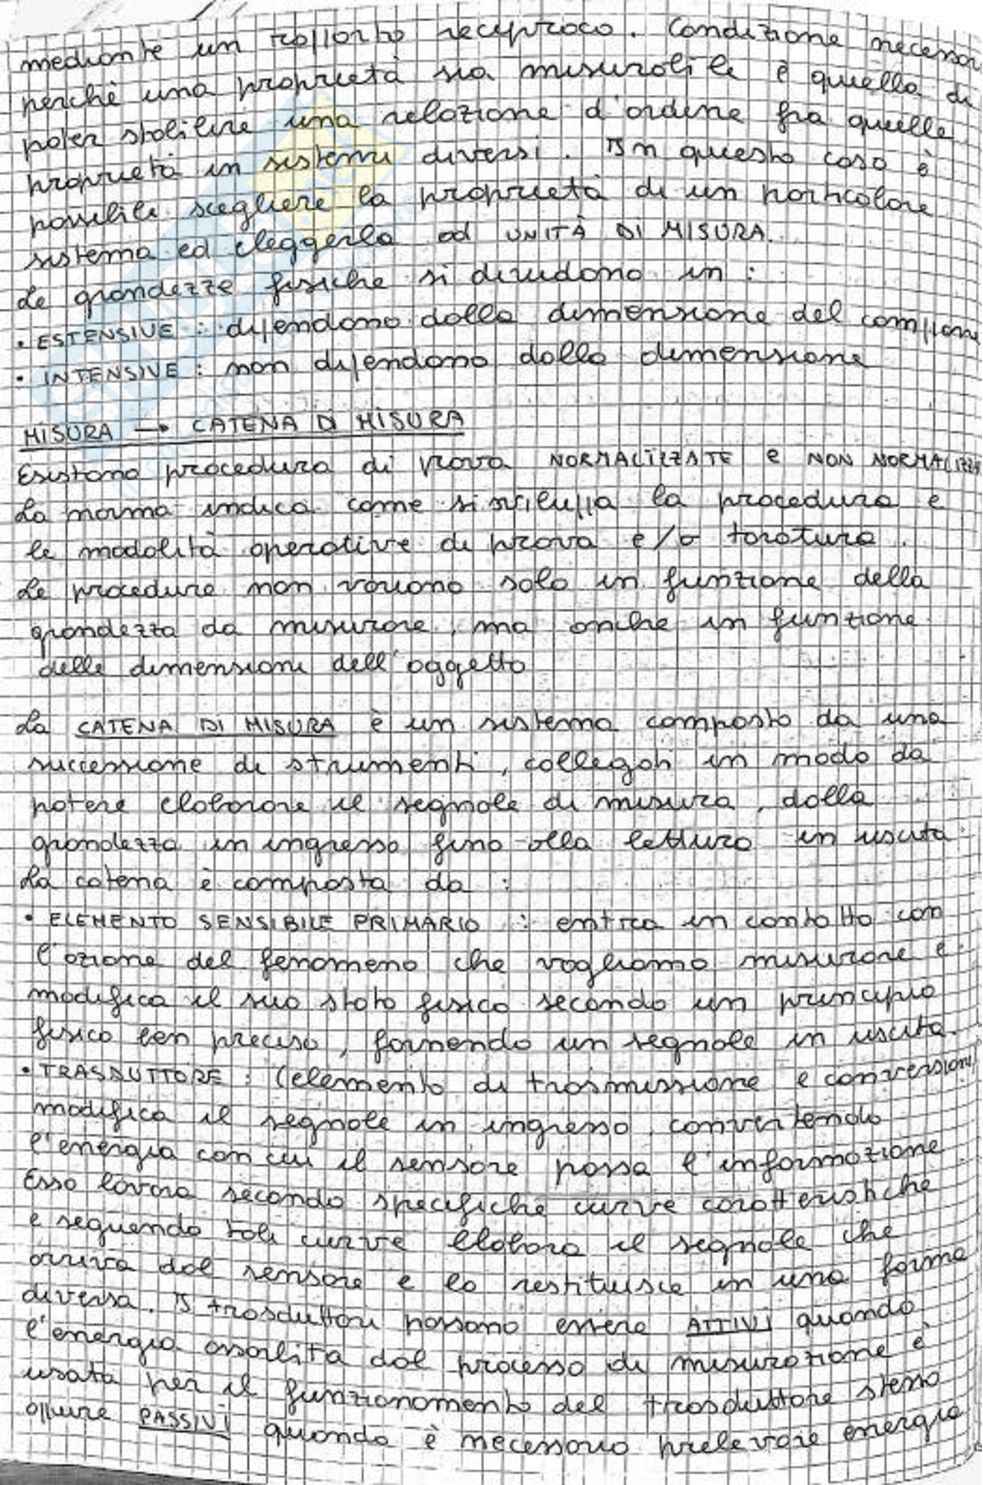 mediante un rapporto reciproco. Condizione necessar
perchè una proprietà sia misurabile è quella di
poter stabilire una relazione d'ordine fra quelle
proprietà in sistemi diversi. In questo caso è
possibile scegliere la proprietà di un particolare
sistema ed eleggerla ad UNITÀ DI MISURA.
Le grandezze fisiche si dividono in :
• ESTENSIVE : dipendono dalla dimensione del campione
• INTENSIVE : non dipendono dalla dimensione
MISURA → CATENA DI MISURA
Esistono procedura di prova NORMALIZZATE e NON NORMALIZZ
La norma indica come si sviluppa la procedura e
le modalità operative di prova e/o taratura.
Le procedure non variano solo in funzione della
grandezza da misurare, ma anche in funzione
delle dimensioni dell'oggetto
La CATENA DI MISURA è un sistema composto da una
successione di strumenti, collegati in modo da
potere elaborare il segnale di misura, dalla
grandezza in ingresso fino alla lettura in uscita.
La catena è composta da :
• ELEMENTO SENSIBILE PRIMARIO : entra in contatto con
l'azione del fenomeno che vogliamo misurare e
modifica il suo stato fisico secondo un principio
fisico ben preciso, fornendo un segnale in uscita.
• TRASDUTTORE : (elemento di trasmissione e conversion
modifica il segnale in ingresso, convertendo
l'energia con cui il sensore passa l'informazione
Esso lavora secondo specifiche curve caratteristiche
e seguendo tali curve elabora il segnale che
arriva dal sensore e lo restituisce in una forma
diversa. I trasduttori possono essere ATTIVI quando
l'energia assorbita dal processo di misurazione è
usata per il funzionamento del trasduttore stesso
oppure PASSIVI quando è necessario prelevare energia